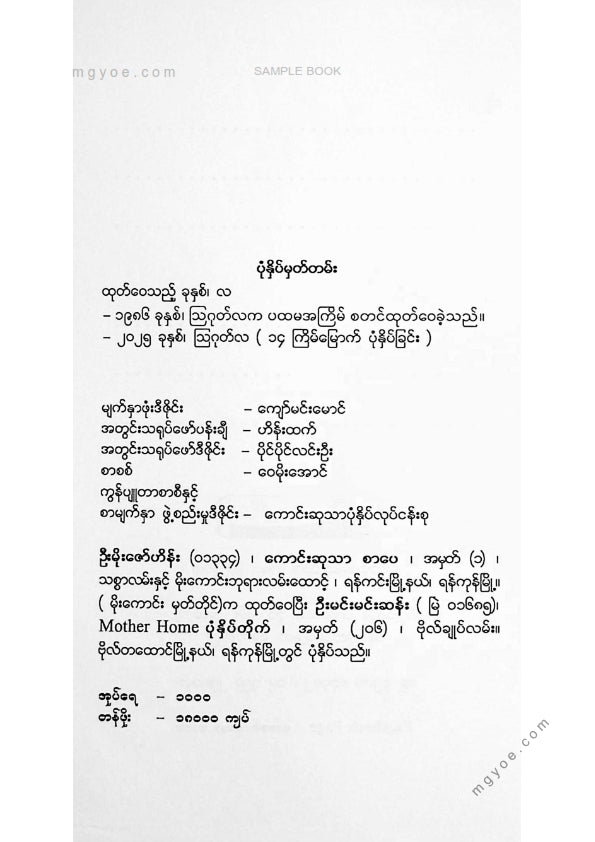 mgyoe.com
SAMPLE BOOK
ပုံနှိပ်မှတ်တမ်း
ထုတ်ဝေသည့် ခုနှစ်၊ လ
– ၁၉၈၆ ခုနှစ်၊ ဩဂုတ်လက ပထမအကြိမ် စတင်ထုတ်ဝေခဲ့သည်။
– ၂၀၂၅ ခုနှစ်၊ ဩဂုတ်လ ( ၁၄ ကြိမ်မြောက် ပုံနှိပ်ခြင်း )
မျက်နှာဖုံးဒီဇိုင်း – ကျော်မင်းမောင်
အတွင်းသရုပ်ဖော်ပန်းချီ – ဟိန်းထက်
အတွင်းသရုပ်ဖော်ဒီဇိုင်း – ပိုင်ပိုင်လင်းဦး
စာစစ် – ဝေမိုးအောင်
ကွန်ပျူတာစာစီနှင့်
စာမျက်နှာ ဖွဲ့စည်းမှုဒီဇိုင်း – ကောင်းဆုသာပုံနှိပ်လုပ်ငန်းစု
ဦးမိုးဇော်ဟိန်း (၀၁၃၃၄) ၊ ကောင်းဆုသာ စာပေ ၊ အမှတ် (၁) ၊
သစ္စာလမ်းနှင့် မိုးကောင်းဘုရားလမ်းထောင့် ၊ ရန်ကင်းမြို့နယ်၊ ရန်ကုန်မြို့။
( မိုးကောင်း မှတ်တိုင်)က ထုတ်ဝေပြီး ဦးမင်းမင်းဆန်း ( မြဲ ၀၁၆၈၅)၊
Mother Home ပုံနှိပ်တိုက် ၊ အမှတ် (၂၀၆) ၊ ဗိုလ်ချုပ်လမ်း။
ဗိုလ်တထောင်မြို့နယ်၊ ရန်ကုန်မြို့တွင် ပုံနှိပ်သည်။
အုပ်ရေ – ၁၀၀၀
တန်ဖိုး – ၁၈၀၀၀ ကျပ်
mgyoe.com